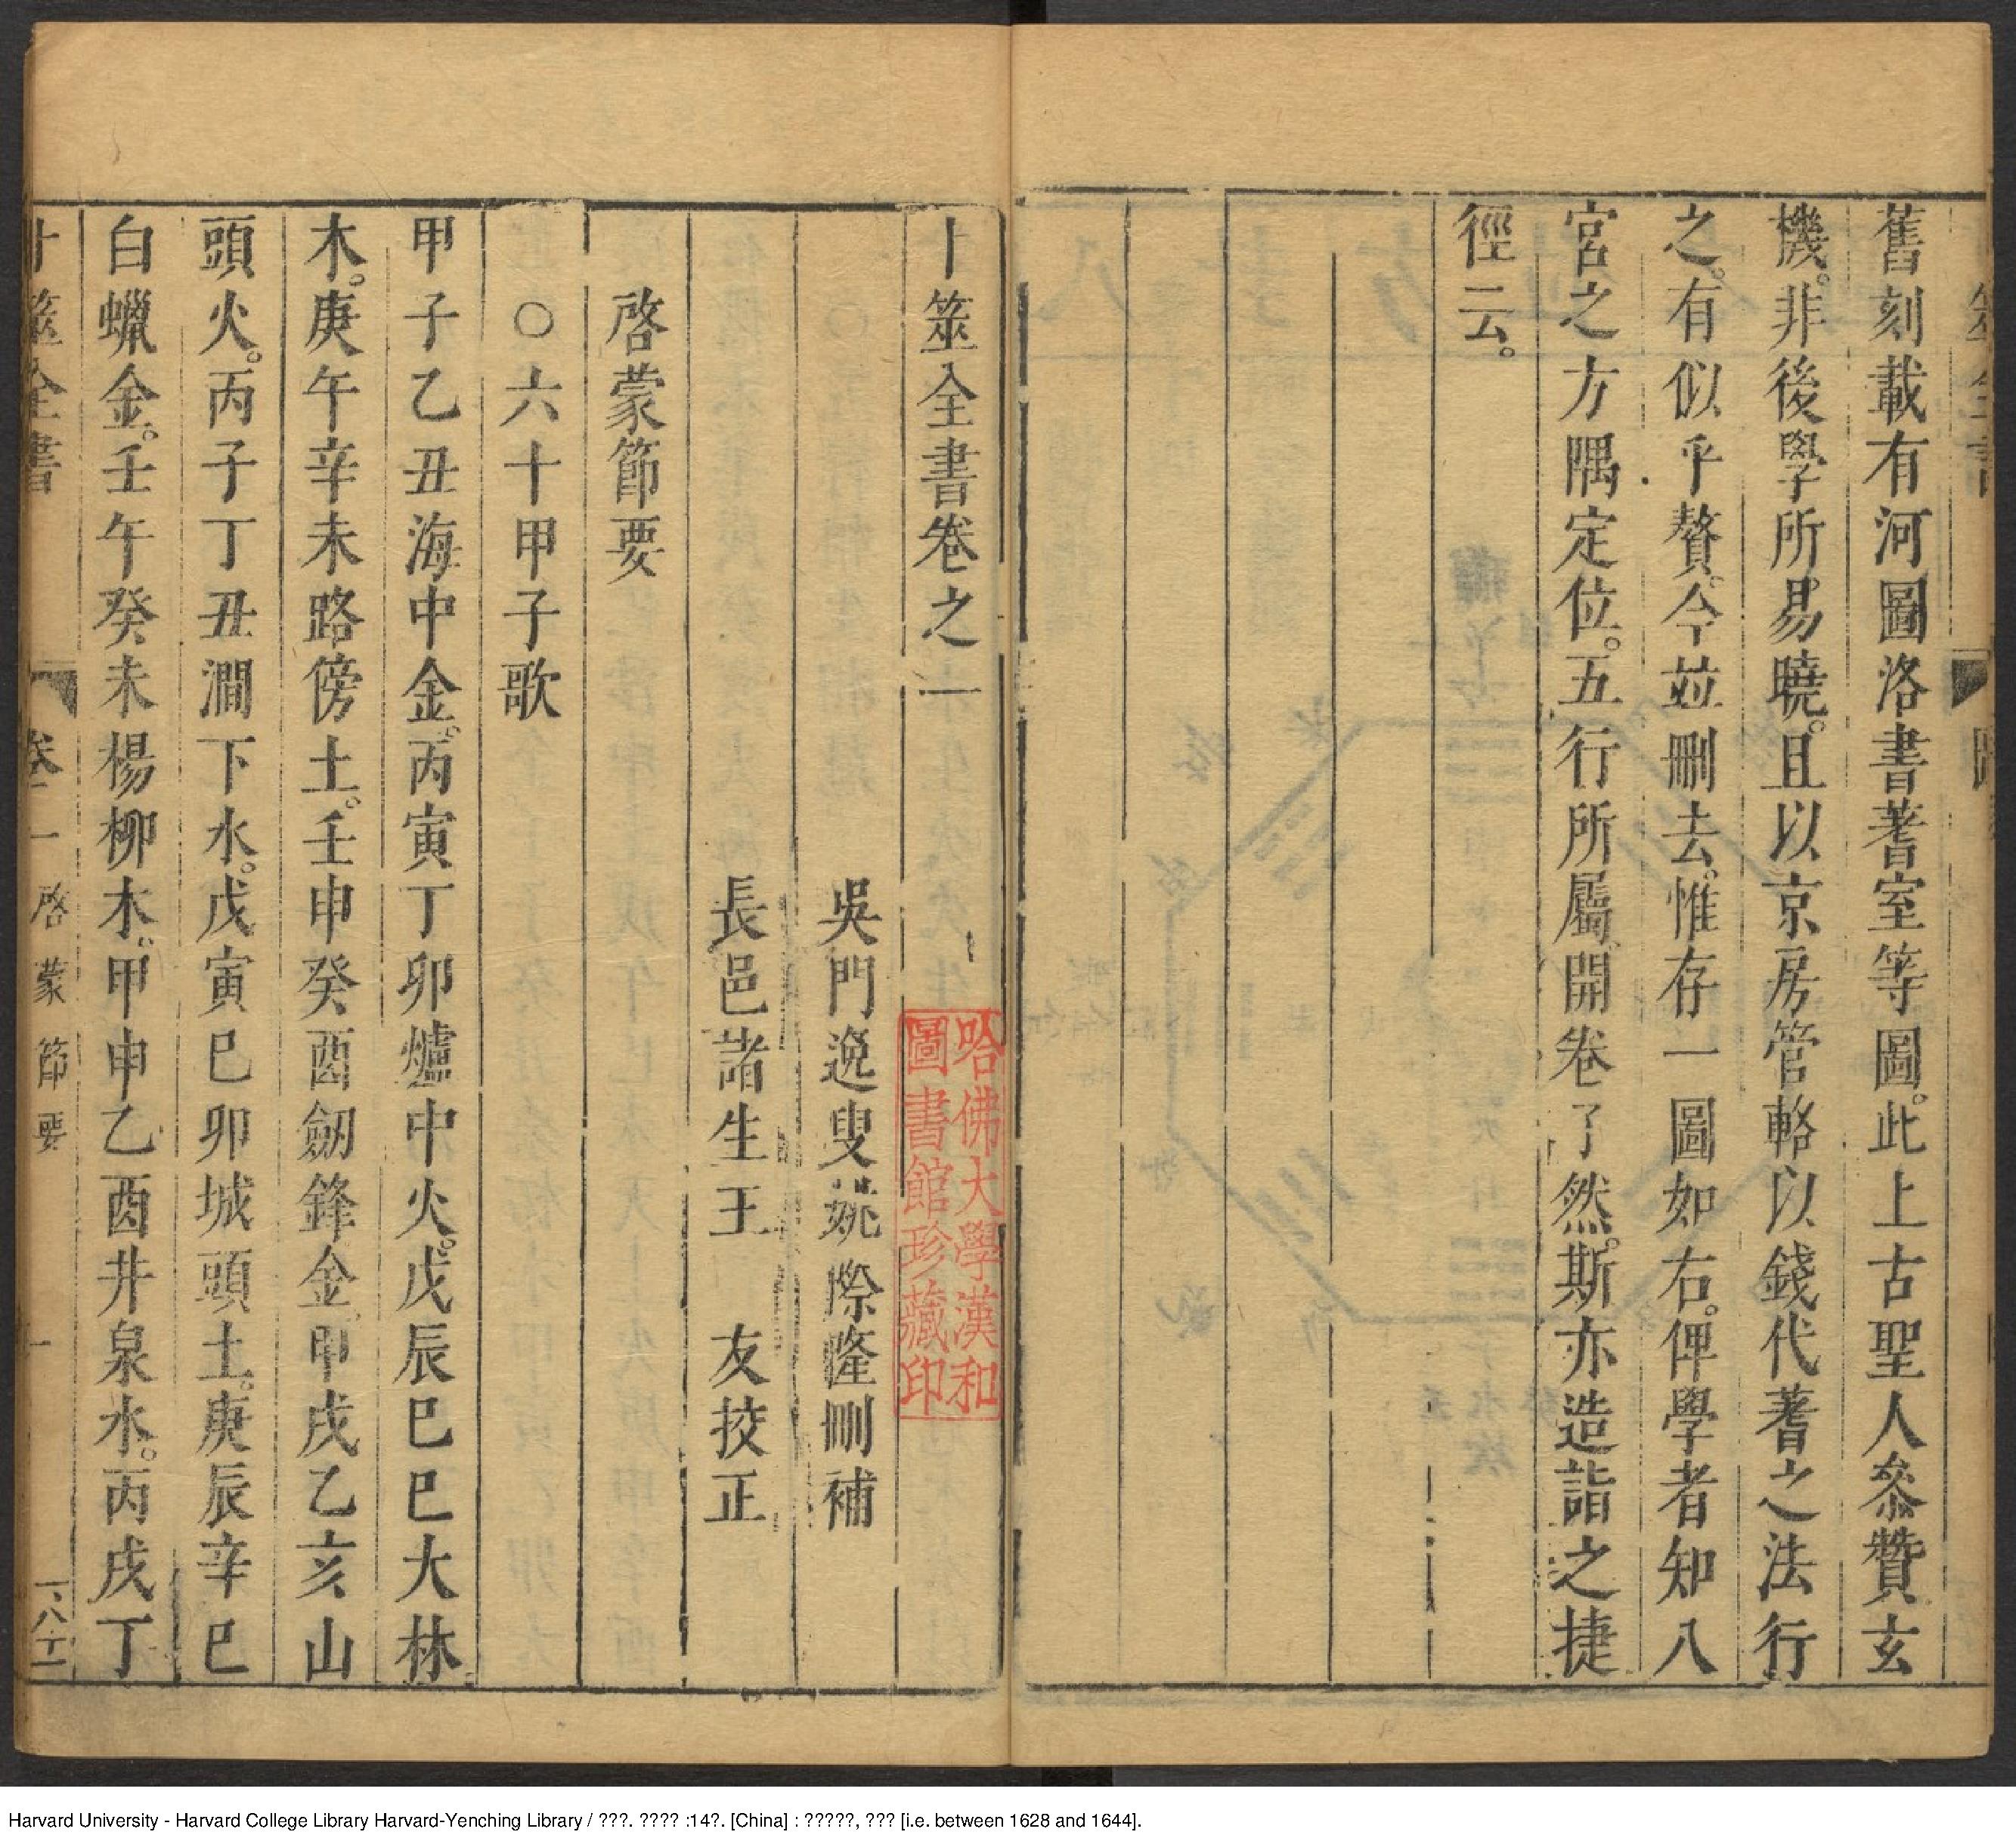 舊刻載有河圖洛書蓍室等圖。此上古聖人叅贊玄
機。非後學所易曉。且以京房管輅以錢代蓍之法行
之。有似乎贅。今並刪去。惟存一圖如右。俾學者知八
宮之方隅定位。五行所屬。開卷了然。斯亦造詣之捷
徑云。
卜筮全書卷之一
吳門逸叟姚際隆刪補
長邑諸生王 友挍正
啓蒙節要
○六十甲子歌
甲子乙丑海中金。丙寅丁卯爐中火。戊辰巳巳大林
木。庚午辛未路傍土。壬申癸酉劒鋒金。甲戌乙亥山
頭火。丙子丁丑澗下水。戊寅巳卯城頭土。庚辰辛巳
白蠟金。壬午癸未楊柳木。甲申乙酉井泉水。丙戌丁
卜筮全書 卷一 啓蒙節要 一
哈佛大學漢和
圖書館珍藏印
Harvard University - Harvard College Library Harvard-Yenching Library / ???. ???? :14?. [China] : ?????, ??? [i.e. between 1628 and 1644].